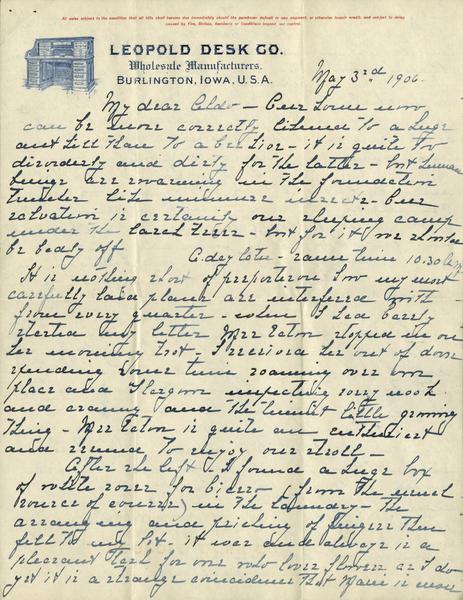 All sales subject to the condition that all bills shall become due immediately should the purchaser default in any payment, or otherwise breach credit, and subject to delay
caused by Fire, Strikes, Accidents or Conditions beyond our control.
LEOPOLD DESK CO.
Wholesale Manufacturers.
BURLINGTON, IOWA, U.S.A.
May 3rd 1906.
My dear Aldo - Our home now
can be more correctly likened to a huge
ant hill than to a bee hive - it is quite too
disorderly and dirty for the latter - but human
beings are swarming in the foundation
timber like insects - Our
salvation is certainly our sleeping camp
under the larch trees - but for it we should
be badly off
A day later - same time 10.30 A.M.
It is nothing short of how my most
carefully laid plans are interfered with
from every quarter - when I had barely
started my letter Mrs Eaton stopped in on
her morning trot - I received her out of doors
spending some time roaming over our
place and Flagom inspecting every nook
and cranny and the tiniest little growing
thing - Mrs Eaton is quite an enthusiast
and seemed to enjoy our stroll -
After she left I found a huge box
of white roses for (from the usual
source of course) in the laundry - the
arranging and pricking of fingers then
fell to my lot - it was and always is a
pleasant task for one who loves flowers as I do
yet it is a strange coincidence that Marie is away